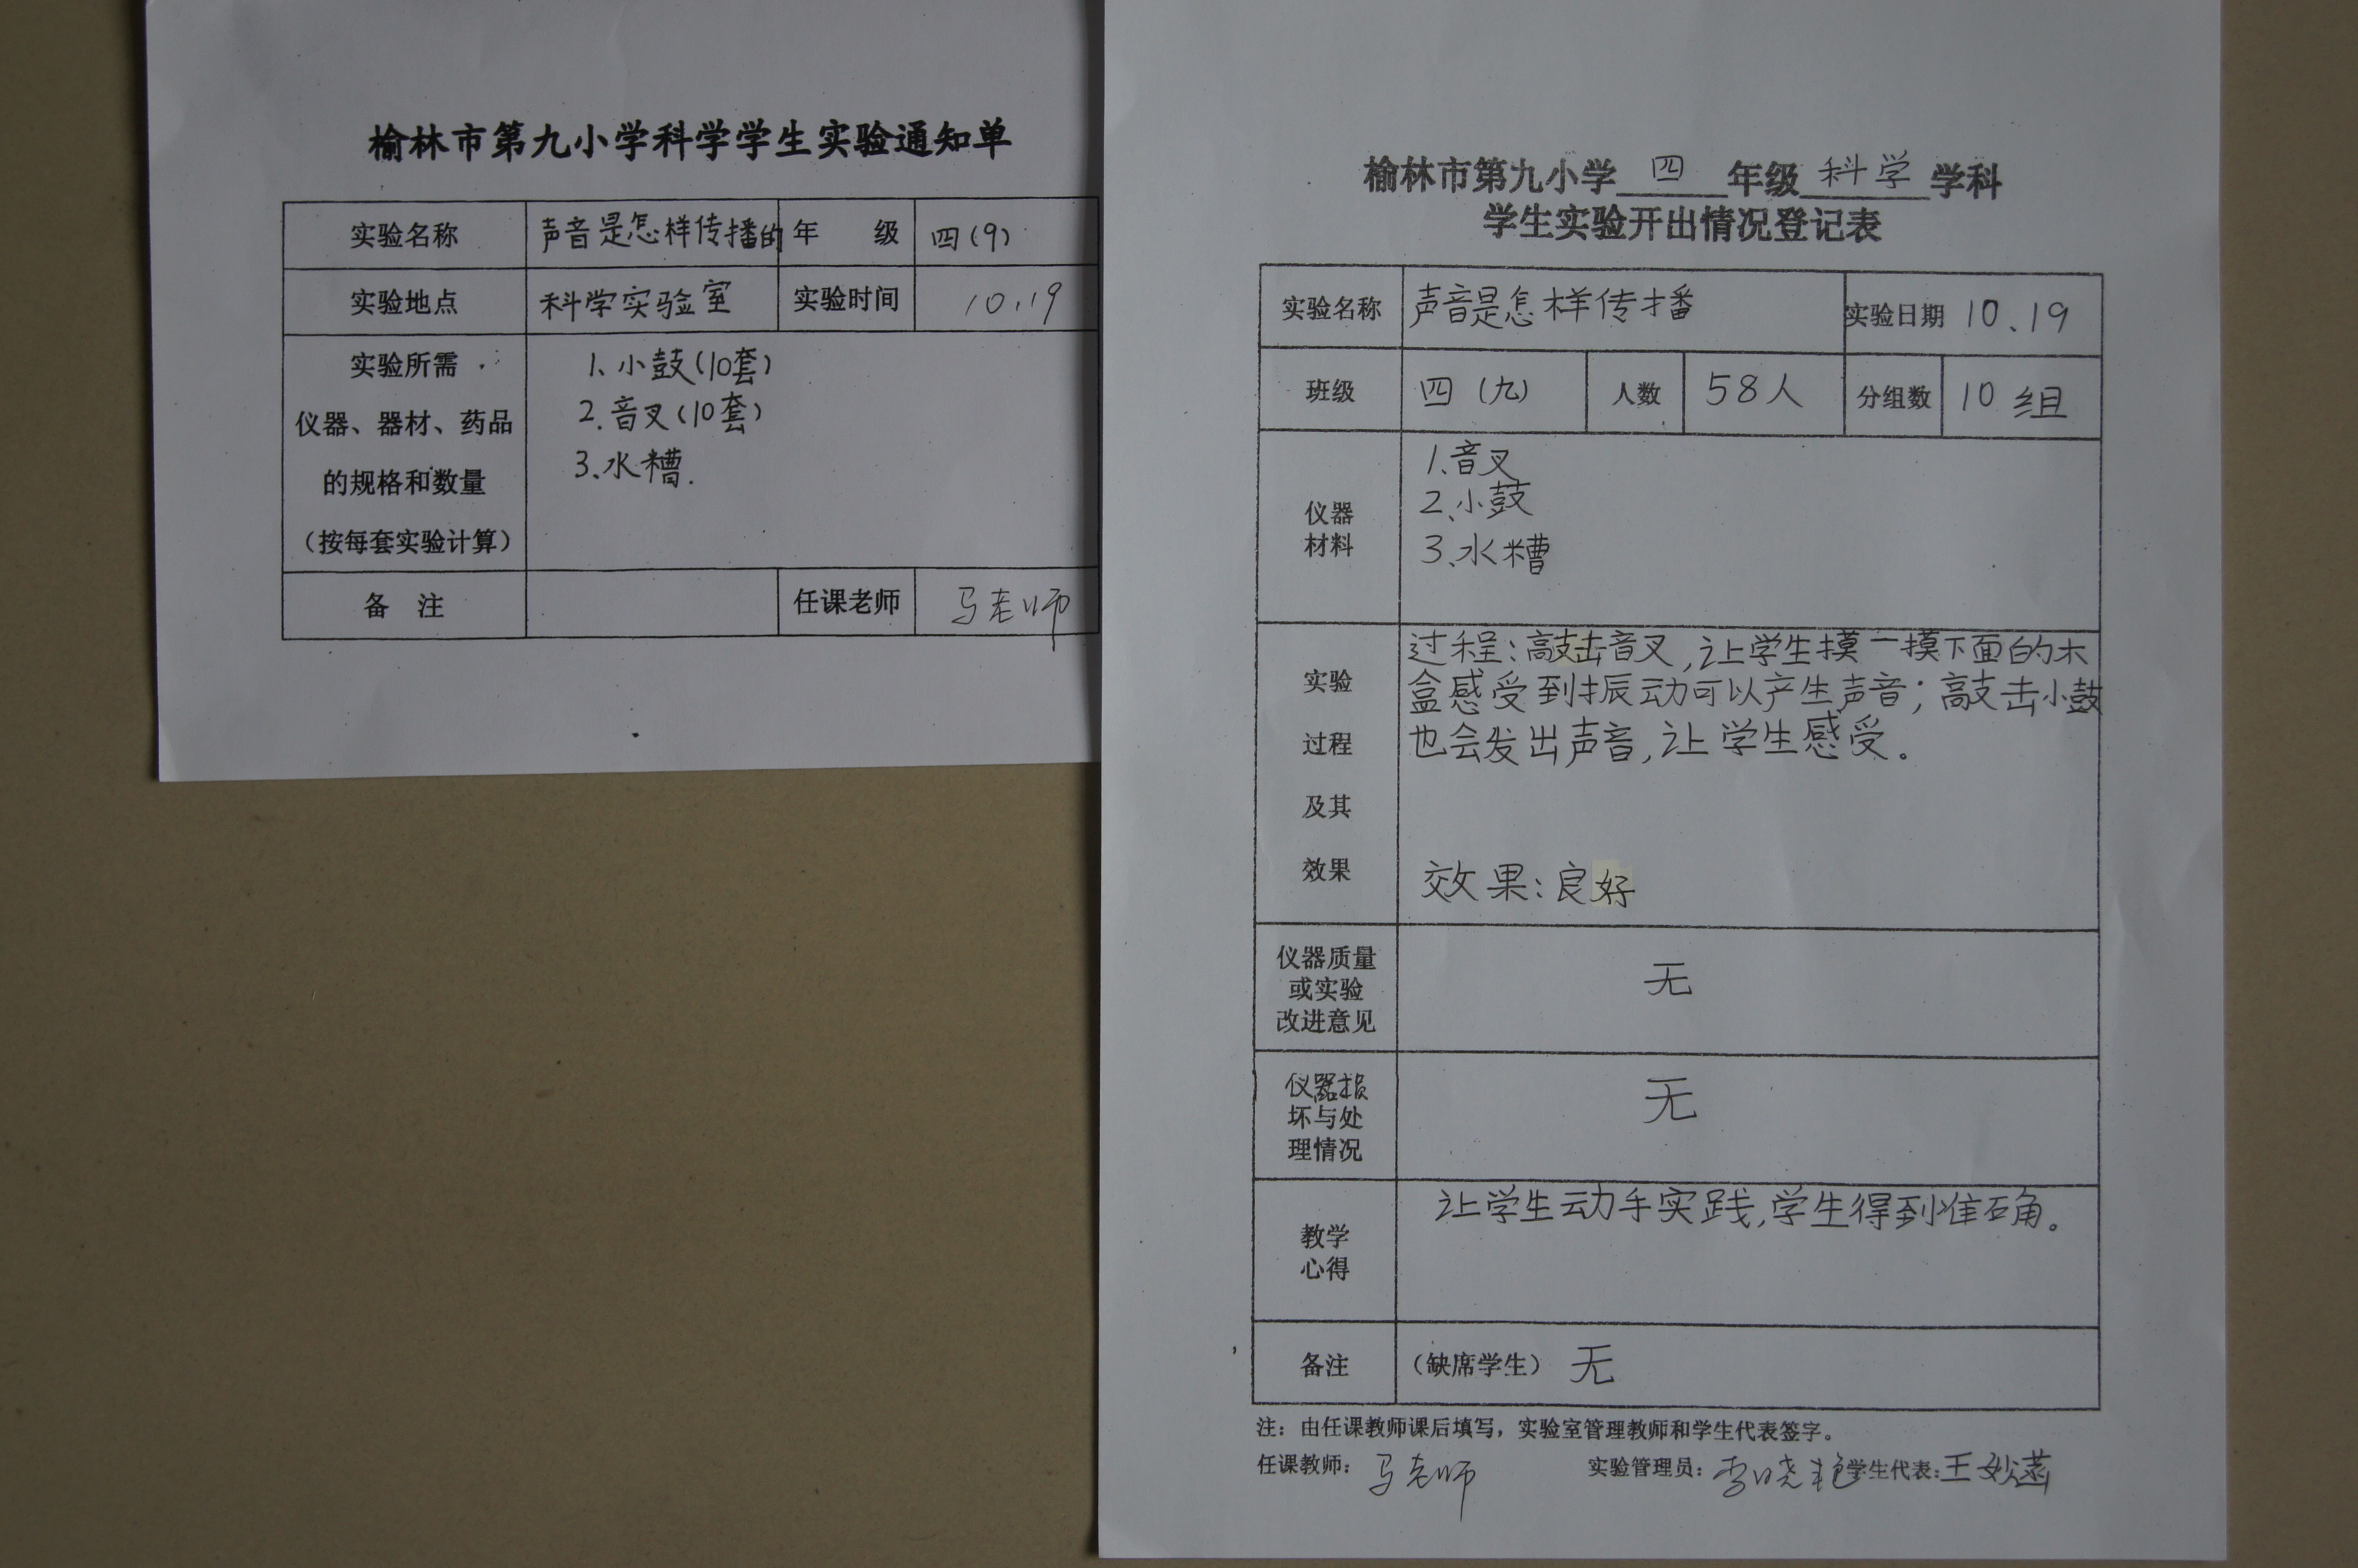 榆林市第九小学科学学生实验通知单
实验名称 声音是怎样传播的 年 级 四(9)
实验地点 科学实验室 实验时间 10.19
实验所需
仪器、器材、药品
的规格和数量
（按每套实验计算）
1、小鼓(10套)
2.音叉(10套)
3、水槽.
备 注 任课老师 马老师
榆林市第九小学 四 年级 科学 学科
学生实验开出情况登记表
实验名称 声音是怎样传播 实验日期 10、19
班级 四（九） 人数 58人 分组数 10组
仪器
材料
1、音叉
2、小鼓
3、水槽
实验
过程
及其
效果
过程：敲击音叉，让学生摸一摸下面的木
盒感受到振动可以产生声音；敲击小鼓
也会发出声音，让学生感受。
效果：良好
仪器质量
或实验
改进意见
无
仪器损
坏与处
理情况
无
教学
心得
让学生动手实践，学生得到准确。
备注 （缺席学生） 无
注：由任课教师课后填写，实验室管理教师和学生代表签字。
任课教师：马老师 实验管理员：李晓艳 学生代表：王妙菡